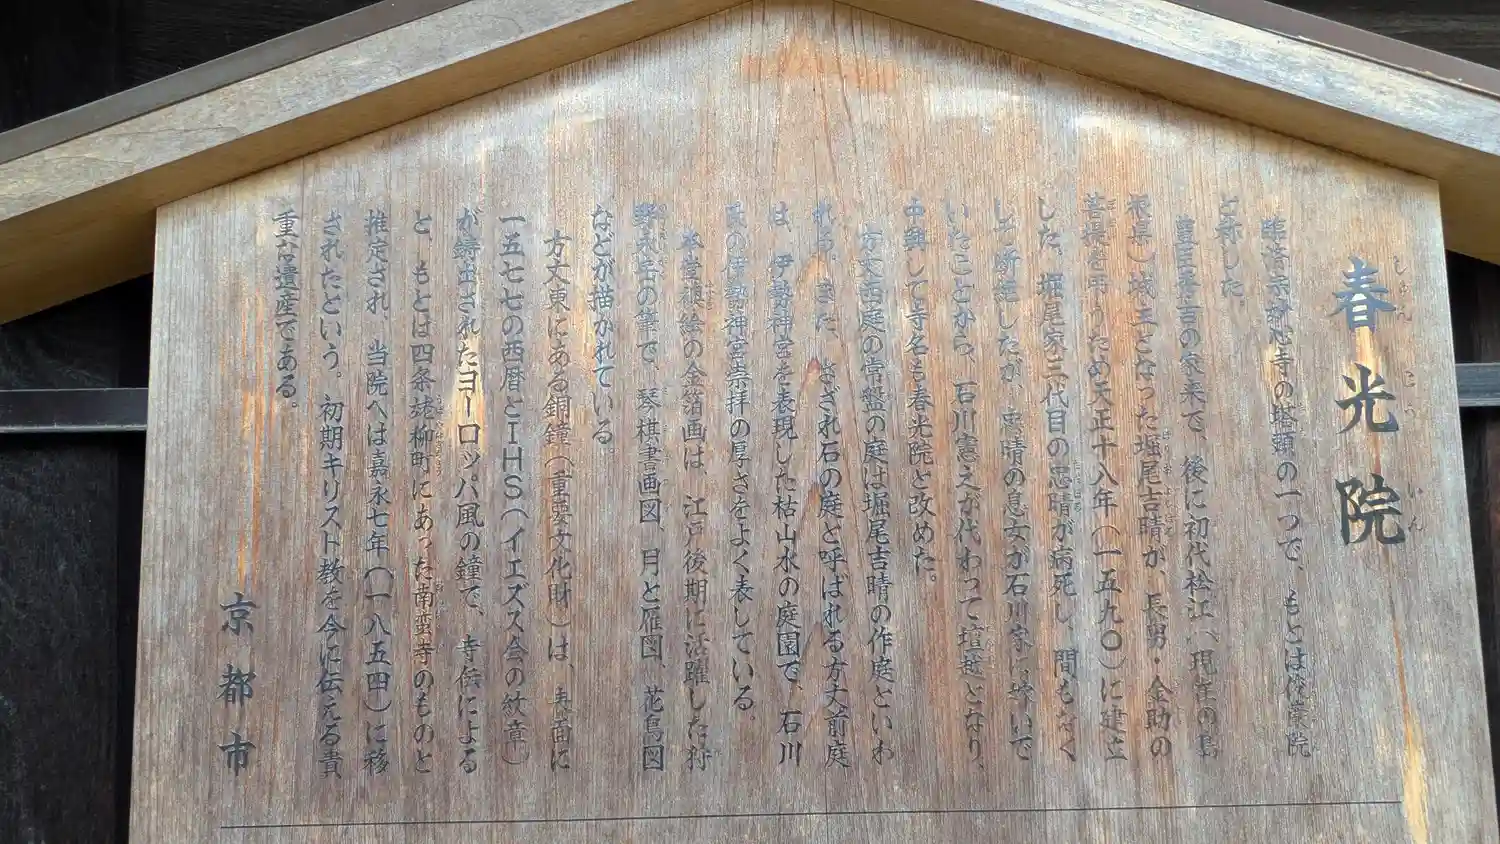 春光院
しゅんこういん
臨済宗妙心寺の塔頭の一つで、もとは俊巌院
と称した。
豊臣秀吉の家来で、後に初代松江(現在の島
根県)城主となった堀尾吉晴が、長男・金助の
菩提を弔うため天正十八年(一五九〇)に建立
した。堀尾家三代目の忠晴が病死し、間もなく
して断絶したが、忠晴の息女が石川家に嫁いで
いたことから、石川憲之が代わって壇越となり、
中興して寺名も春光院と改めた。
方丈西庭の常盤の庭は堀尾吉晴の作庭といわ
れる。また、さざれ石の庭と呼ばれる方丈前庭
は、伊勢神宮を表現した枯山水の庭園で、石川
家の伊勢神宮崇拝の厚さをよく表している。
本堂襖絵の金箔画は、江戸後期に活躍した狩
野永岳の筆で、琴棋書画図、月と雁図、花鳥図
などが描かれている。
方丈東にある銅鐘(重要文化財)は、表面に
一五七七の西暦とIHS(イエズス会の紋章)
が鋳出されたヨーロッパ風の鐘で、寺伝による
と、もとは四条姥柳町にあった南蛮寺のものと
推定され、当院へは嘉永七年(一八五四)に移
されたという。初期キリスト教を今に伝える貴
重な遺産である。
京都市